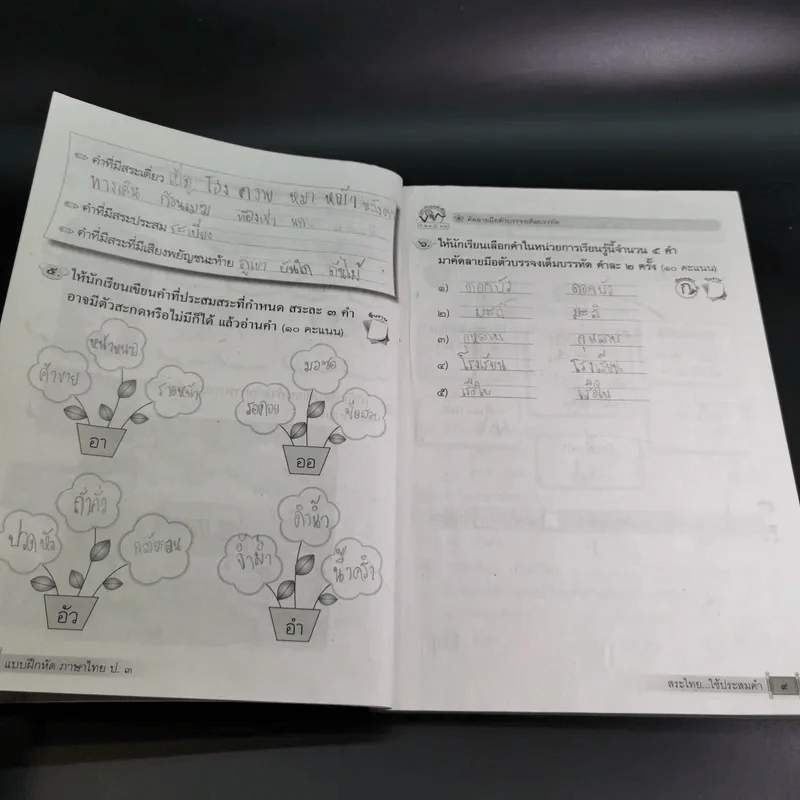 คำที่มีสระเดี่ยว เป็ด โรง ควาย หมา หญ้า
ทางเดิน ก้อนเมฆ ห้องเช่า
คำที่มีสระประสม ระเบียง
คำที่มีสระที่มีเสียงพยัญชนะท้าย ภูเขา บันได ต้นไม้
๕. ให้นักเรียนเขียนคำที่ประสมสระที่กำหนด สระละ ๓ คำ
อาจมีตัวสะกดหรือไม่มีก็ได้ แล้วอ่านคำ (๑๐ คะแนน)
ค้าขาย
อา
มอซอ
รอคอย
ข้อสอบ
ออ
ปวดหัว
อัว
อำ
แบบฝึกหัด ภาษาไทย ป. ๓
คัดลายมือตัวบรรจงเต็มบรรทัด
๖. ให้นักเรียนเลือกคำในหน่วยการเรียนรู้นี้จำนวน ๕ คำ
มาคัดลายมือตัวบรรจงเต็มบรรทัด คำละ ๒ ครั้ง (๑๐ คะแนน)
๑) ดอกบัว ดอกบัว
๒) มะลิ มะลิ
๓) กุหลาบ กุหลาบ
๔) โรงเรียน โรงเรียน
๕) เรือใบ เรือใบ
สระไทย...ใช้ประสมคำ ๙